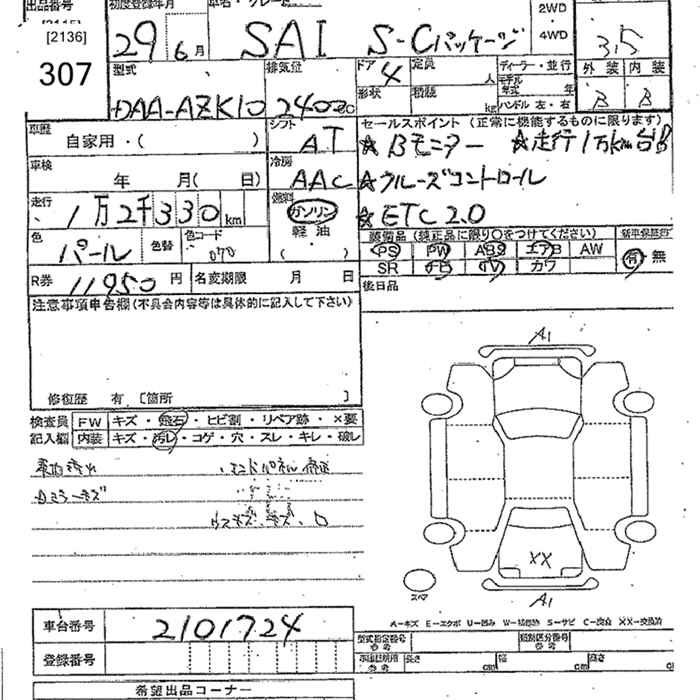 出品番号 初度登録年月 車名・グレード 2WD
[2136] 29 6月 SAI S-Cパッケージ ・4WD 3.5
307 型式 排気量 ドア 4 定員 人 ディーラー・並行 外装 内装
DAA-AZK10 2400cc 形状 積載 kg モデル年式 年 B B
ハンドル 左・右
車歴 自家用・( ) シフト AT セールスポイント (正常に機能するものに限ります)
☆Bモニター ☆走行1万km台!!
車検 年 月( 日) 冷房 AAC ☆クルーズコントロール
走行 1万2千330km 燃料 ガソリン ☆ETC 2.0
色 パール 色替 色コード 070 軽油 装備品 (純正品に限り○をつけてください) 新車保証書
PS PW ABS エアB AW 有・無
R券 11950円 名変期限 月 日 ( ) SR ナビ TV カワ
注意事項申告欄 (不具合内容等は具体的に記入して下さい) 後日品
A1
修復歴 有 [箇所 ]
検査員 FW キズ・飛石・ヒビ割・リペア跡・×要
記入欄 内装 キズ・汚レ・コゲ・穴・スレ・キレ・破レ
XX
スペア
A1
A-キズ E-エクボ U-凹み W-補修跡 S-サビ C-腐食 XX-交換済
車台番号 2101724
型式指定番号 参考 類別区分番号 参考
登録番号 長さ cm 幅 cm 高さ cm
希望出品コーナー